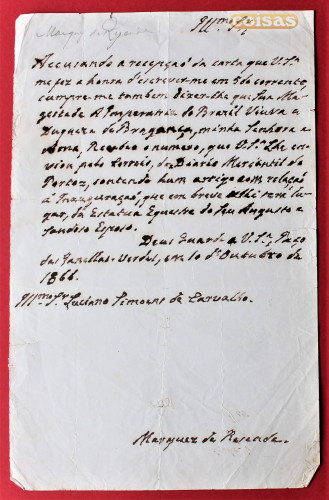 coisas
Marquez de Rezende
Illmo Sr
Accusando a recepção da carta que V. Sa
me fez a honra d'escrever-me em 5 do corrente,
cumpre-me tambem dizer-lhe que Sua Ma-
gestade A Imperatriz do Brazil Viuva e
Duqueza de Bragança, minha Senhora e
Ama, Recebeo o numero, que V. Sa Lhe en-
viou pelo Correio, do Diario Mercantil do
Porto, contendo hum artigo com relação
á Inauguração, que em breve alli terá lu-
gar, da Estatua Equestre do Seu Augusto e
Saudoso Esposo.
Deus Guarde a V. Sa, Paço
das Janellas-Verdes, em 10 d'Outubro de
1866.
Illmo Sr Luciano Simoens de Carvalho.
Marquez de Resende.